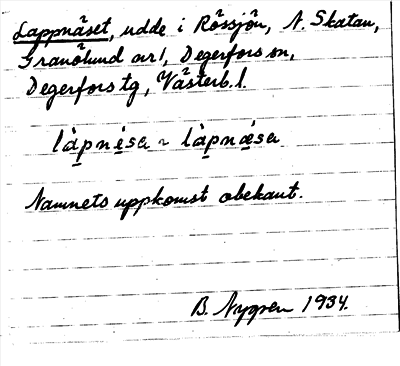 Lappnäset, udde i Rössjön, N. Skatan,
Granölund av 1, Degerfors sn,
Degerfors tg, Västerb. l.
làpnésa ~ làpnæ̀sa
Namnets uppkomst obekant.
B. Nygren 1934.